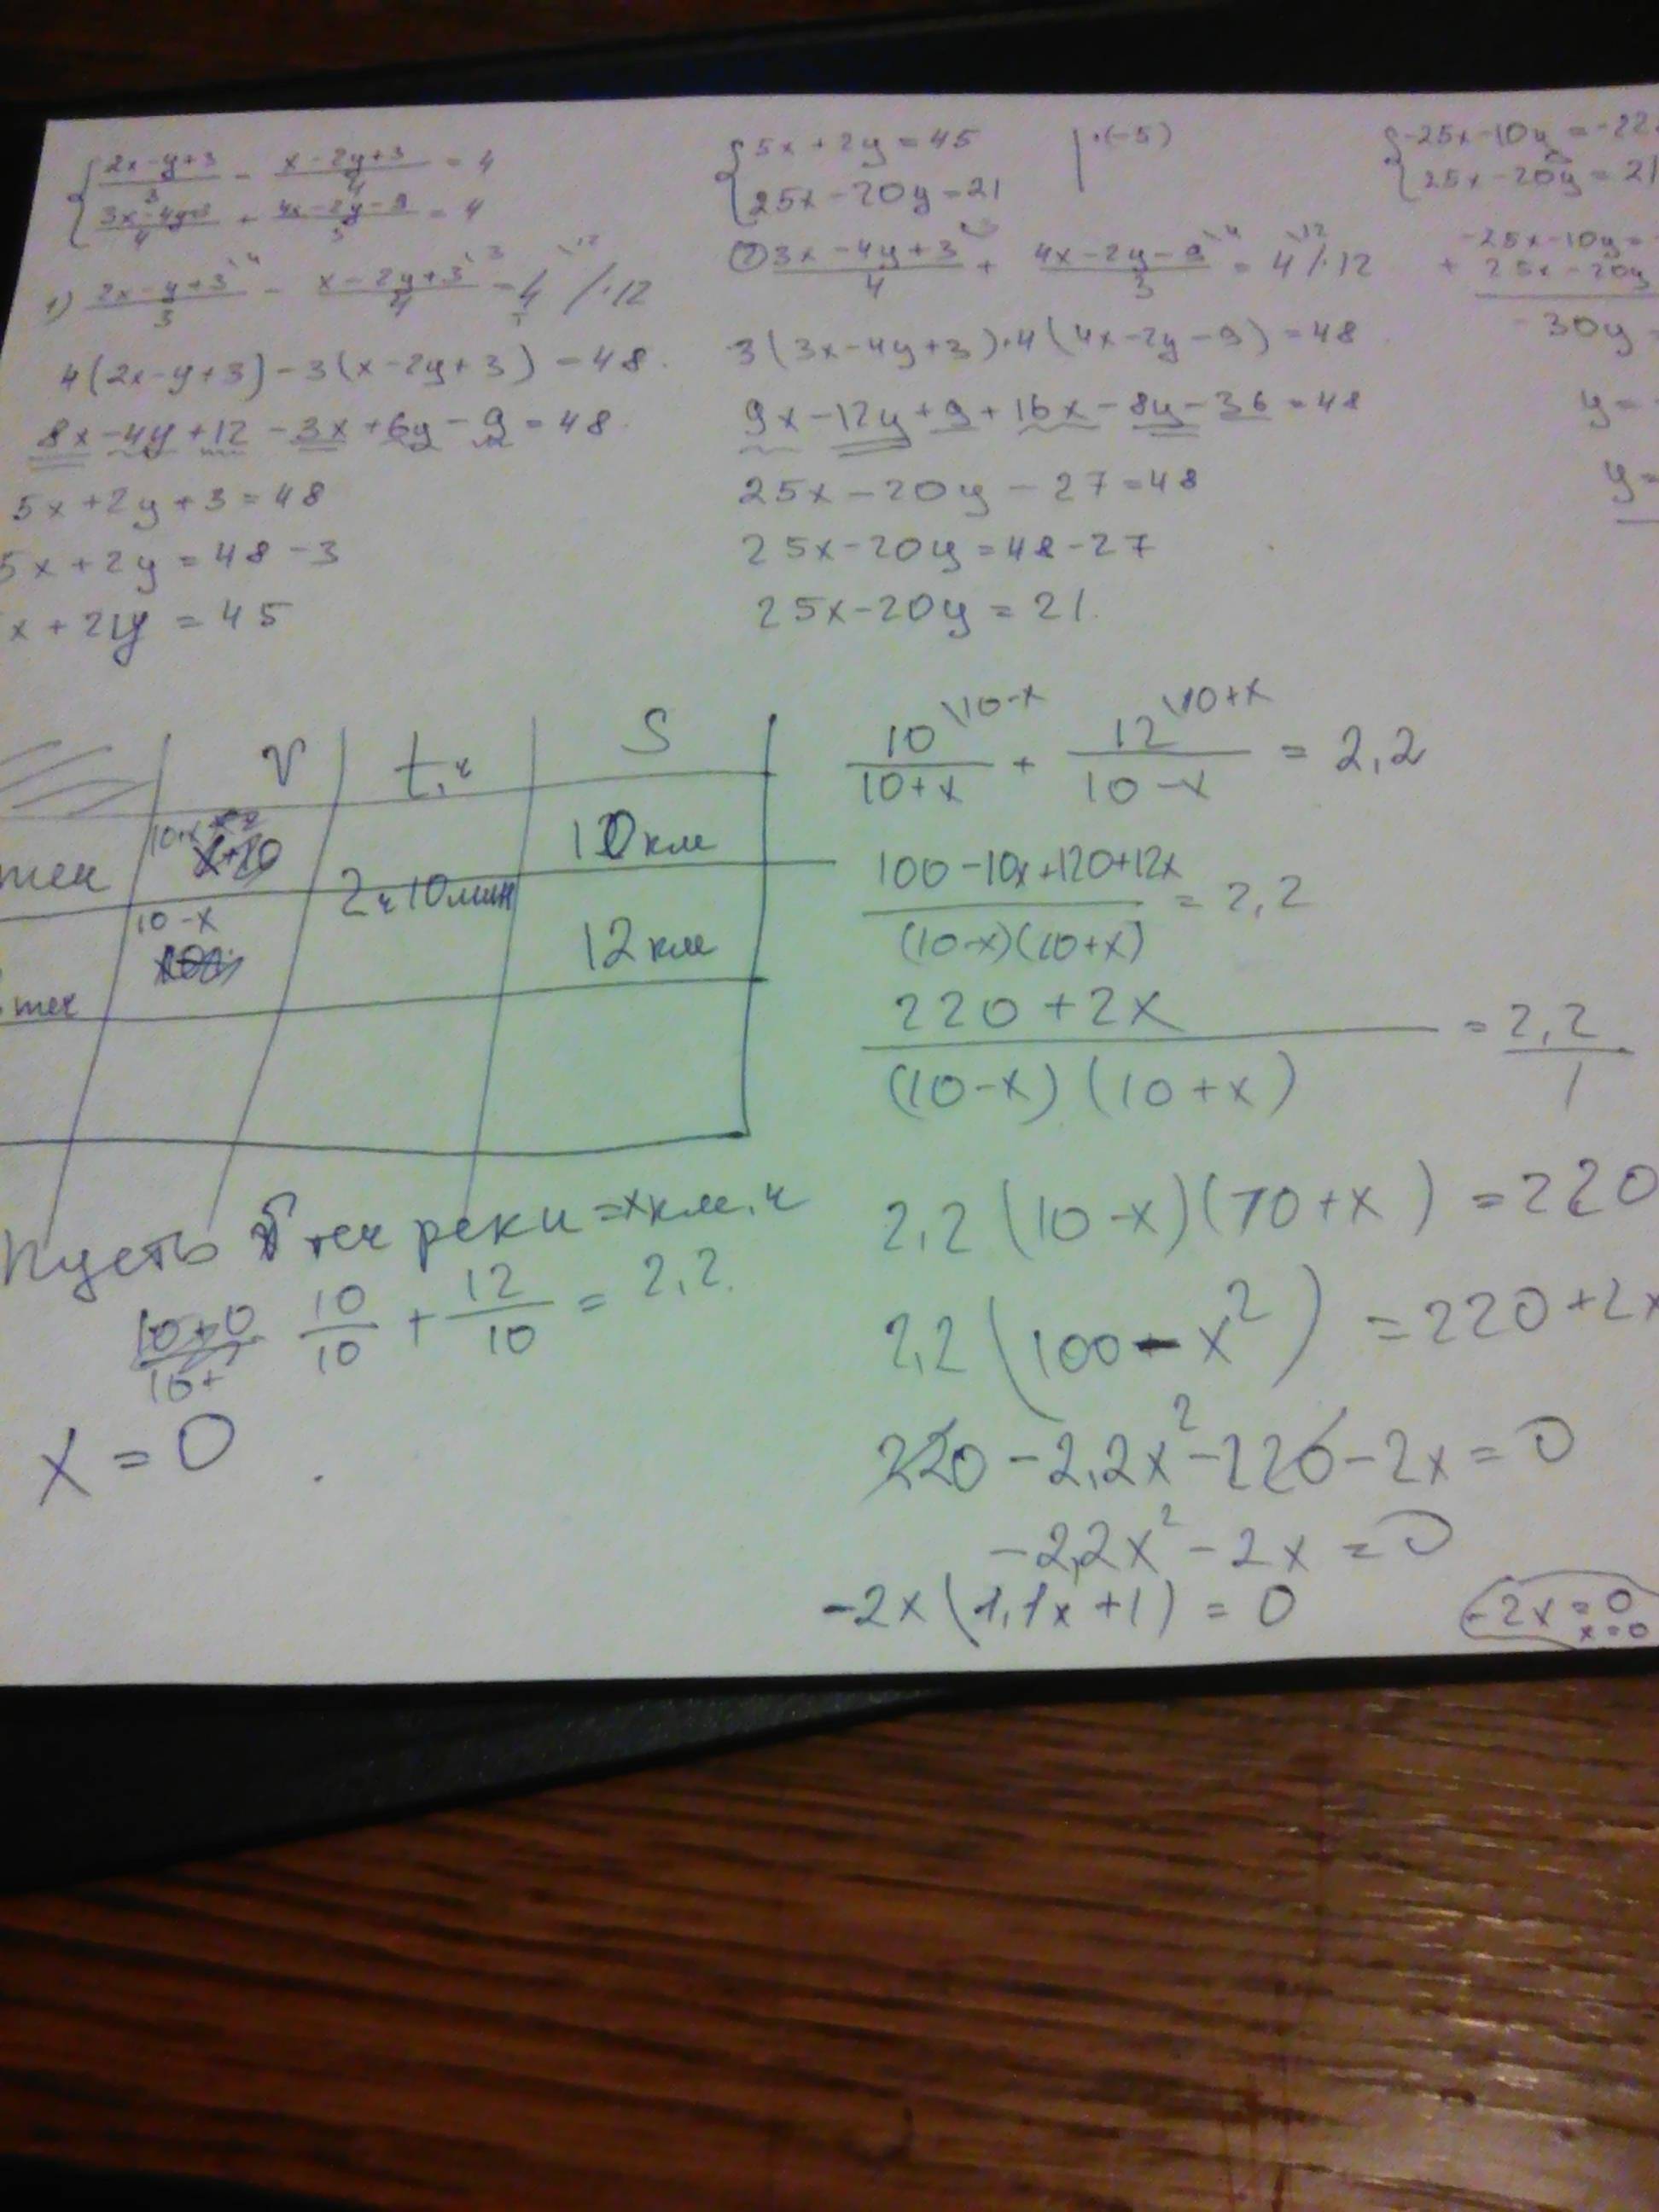 { (2x-y+3)/3 - (x-2y+3)/4 = 4
(3x-4y+3)/4 + (4x-2y-9)/3 = 4
1) (2x-y+3)/3 \4 - (x-2y+3)/4 \3 = 4/1 \12 /·12
4(2x-y+3)-3(x-2y+3)=48.
8x-4y+12-3x+6y-9=48.
5x+2y+3=48
5x+2y=48-3
x+2y=45
{ 5x+2y=45 |·(-5)
25x-20y=21
② (3x-4y+3)/4 \3 + (4x-2y-9)/3 \4 = 4 \12 /·12
3(3x-4y+3)+4(4x-2y-9)=48
9x-12y+9+16x-8y-36=48
25x-20y-27=48
25x-20y=48-27
25x-20y=21.
{ -25x-10y=-22
25x-20y=21
+ -25x-10y=
25x-20y
-30y=
y=-
y=
V t,ч S
теч 10+x 10км
2ч10мин
теч 10-x 12км
Пусть V теч реки=xкм.ч
10/10 + 12/10 = 2,2.
x=0
10/(10+x) \10-x + 12/(10-x) \10+x = 2,2
(100-10x+120+12x)/((10-x)(10+x)) = 2,2
(220+2x)/((10-x)(10+x)) = 2,2/1
2,2(10-x)(10+x)=220
2,2(100-x²)=220+2x
220-2,2x²-220-2x=0
-2,2x²-2x=0
-2x(1,1x+1)=0
-2x=0
x=0